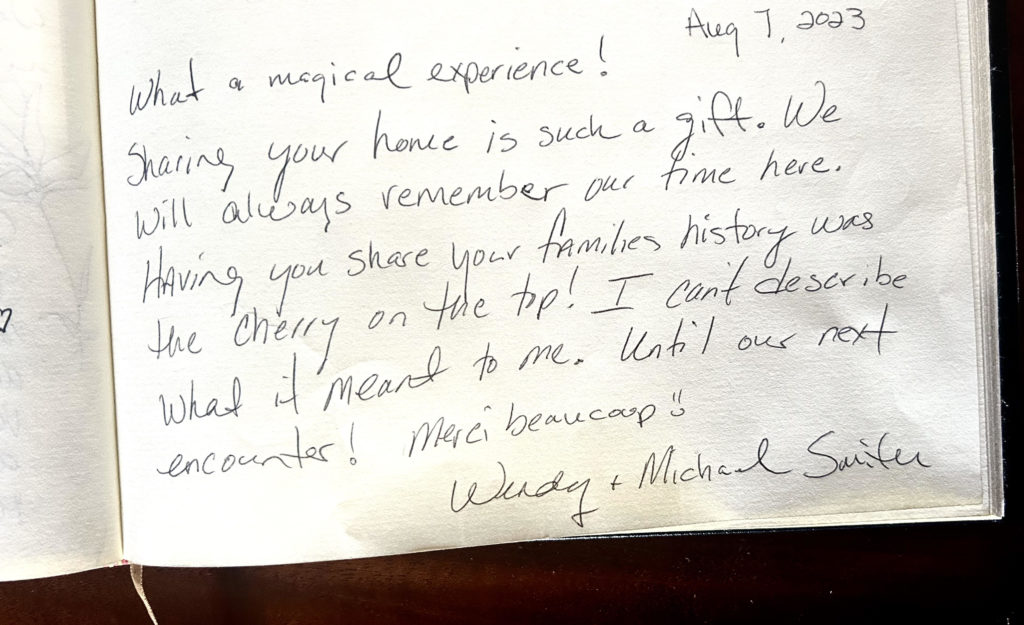 Aug 7, 2023
What a magical experience!
Sharing your home is such a gift. We
will always remember our time here.
Having you share your families history was
the cherry on the top! I can't describe
what it meant to me. Until our next
encounter! Merci beaucoup
Wendy + Michael